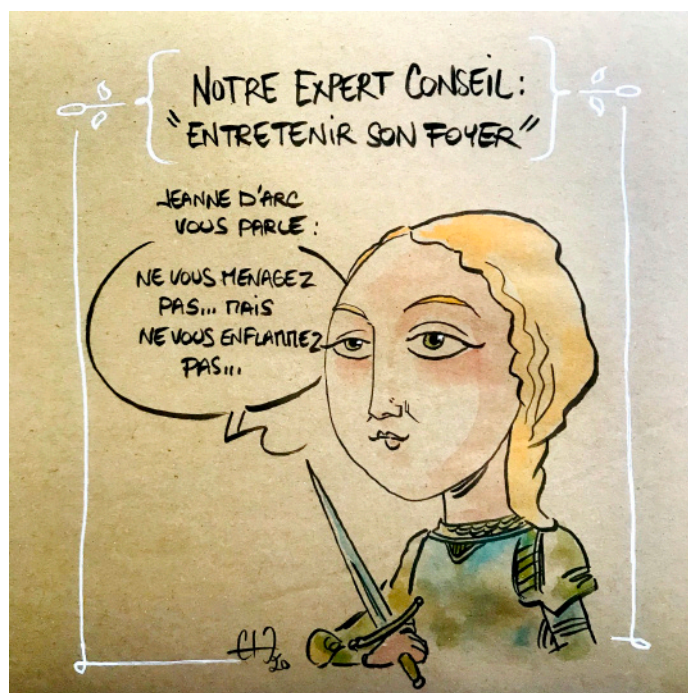 NOTRE EXPERT CONSEIL:
"ENTRETENIR SON FOYER"
JEANNE D'ARC
VOUS PARLE:
NE VOUS MENAGEZ
PAS... MAIS
NE VOUS ENFLAMMEZ
PAS...